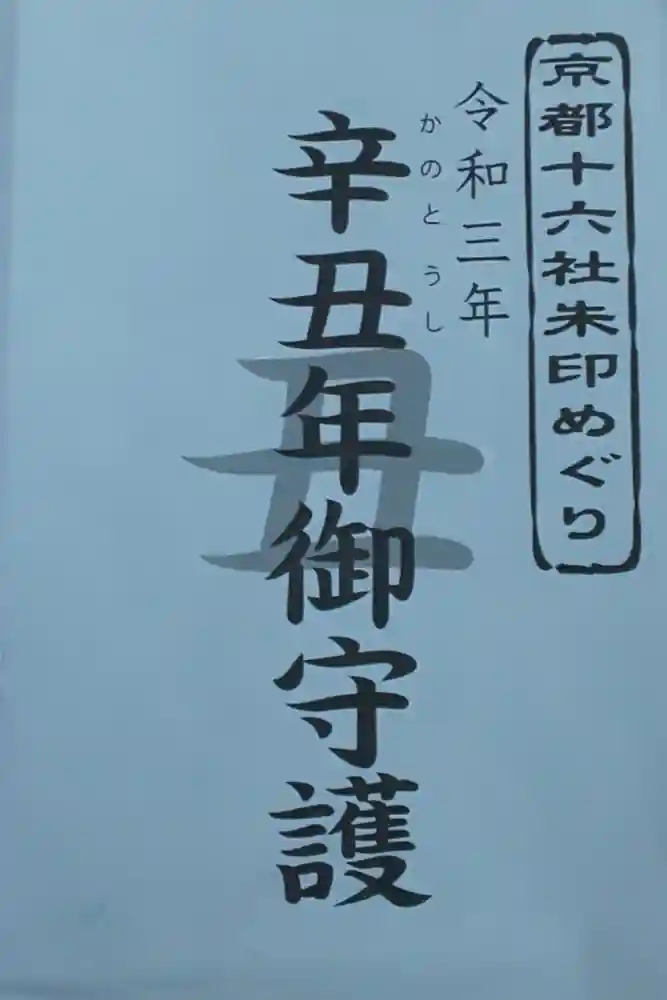 京都十六社朱印めぐり
令和三年
かのとうし
辛丑年御守護
丑